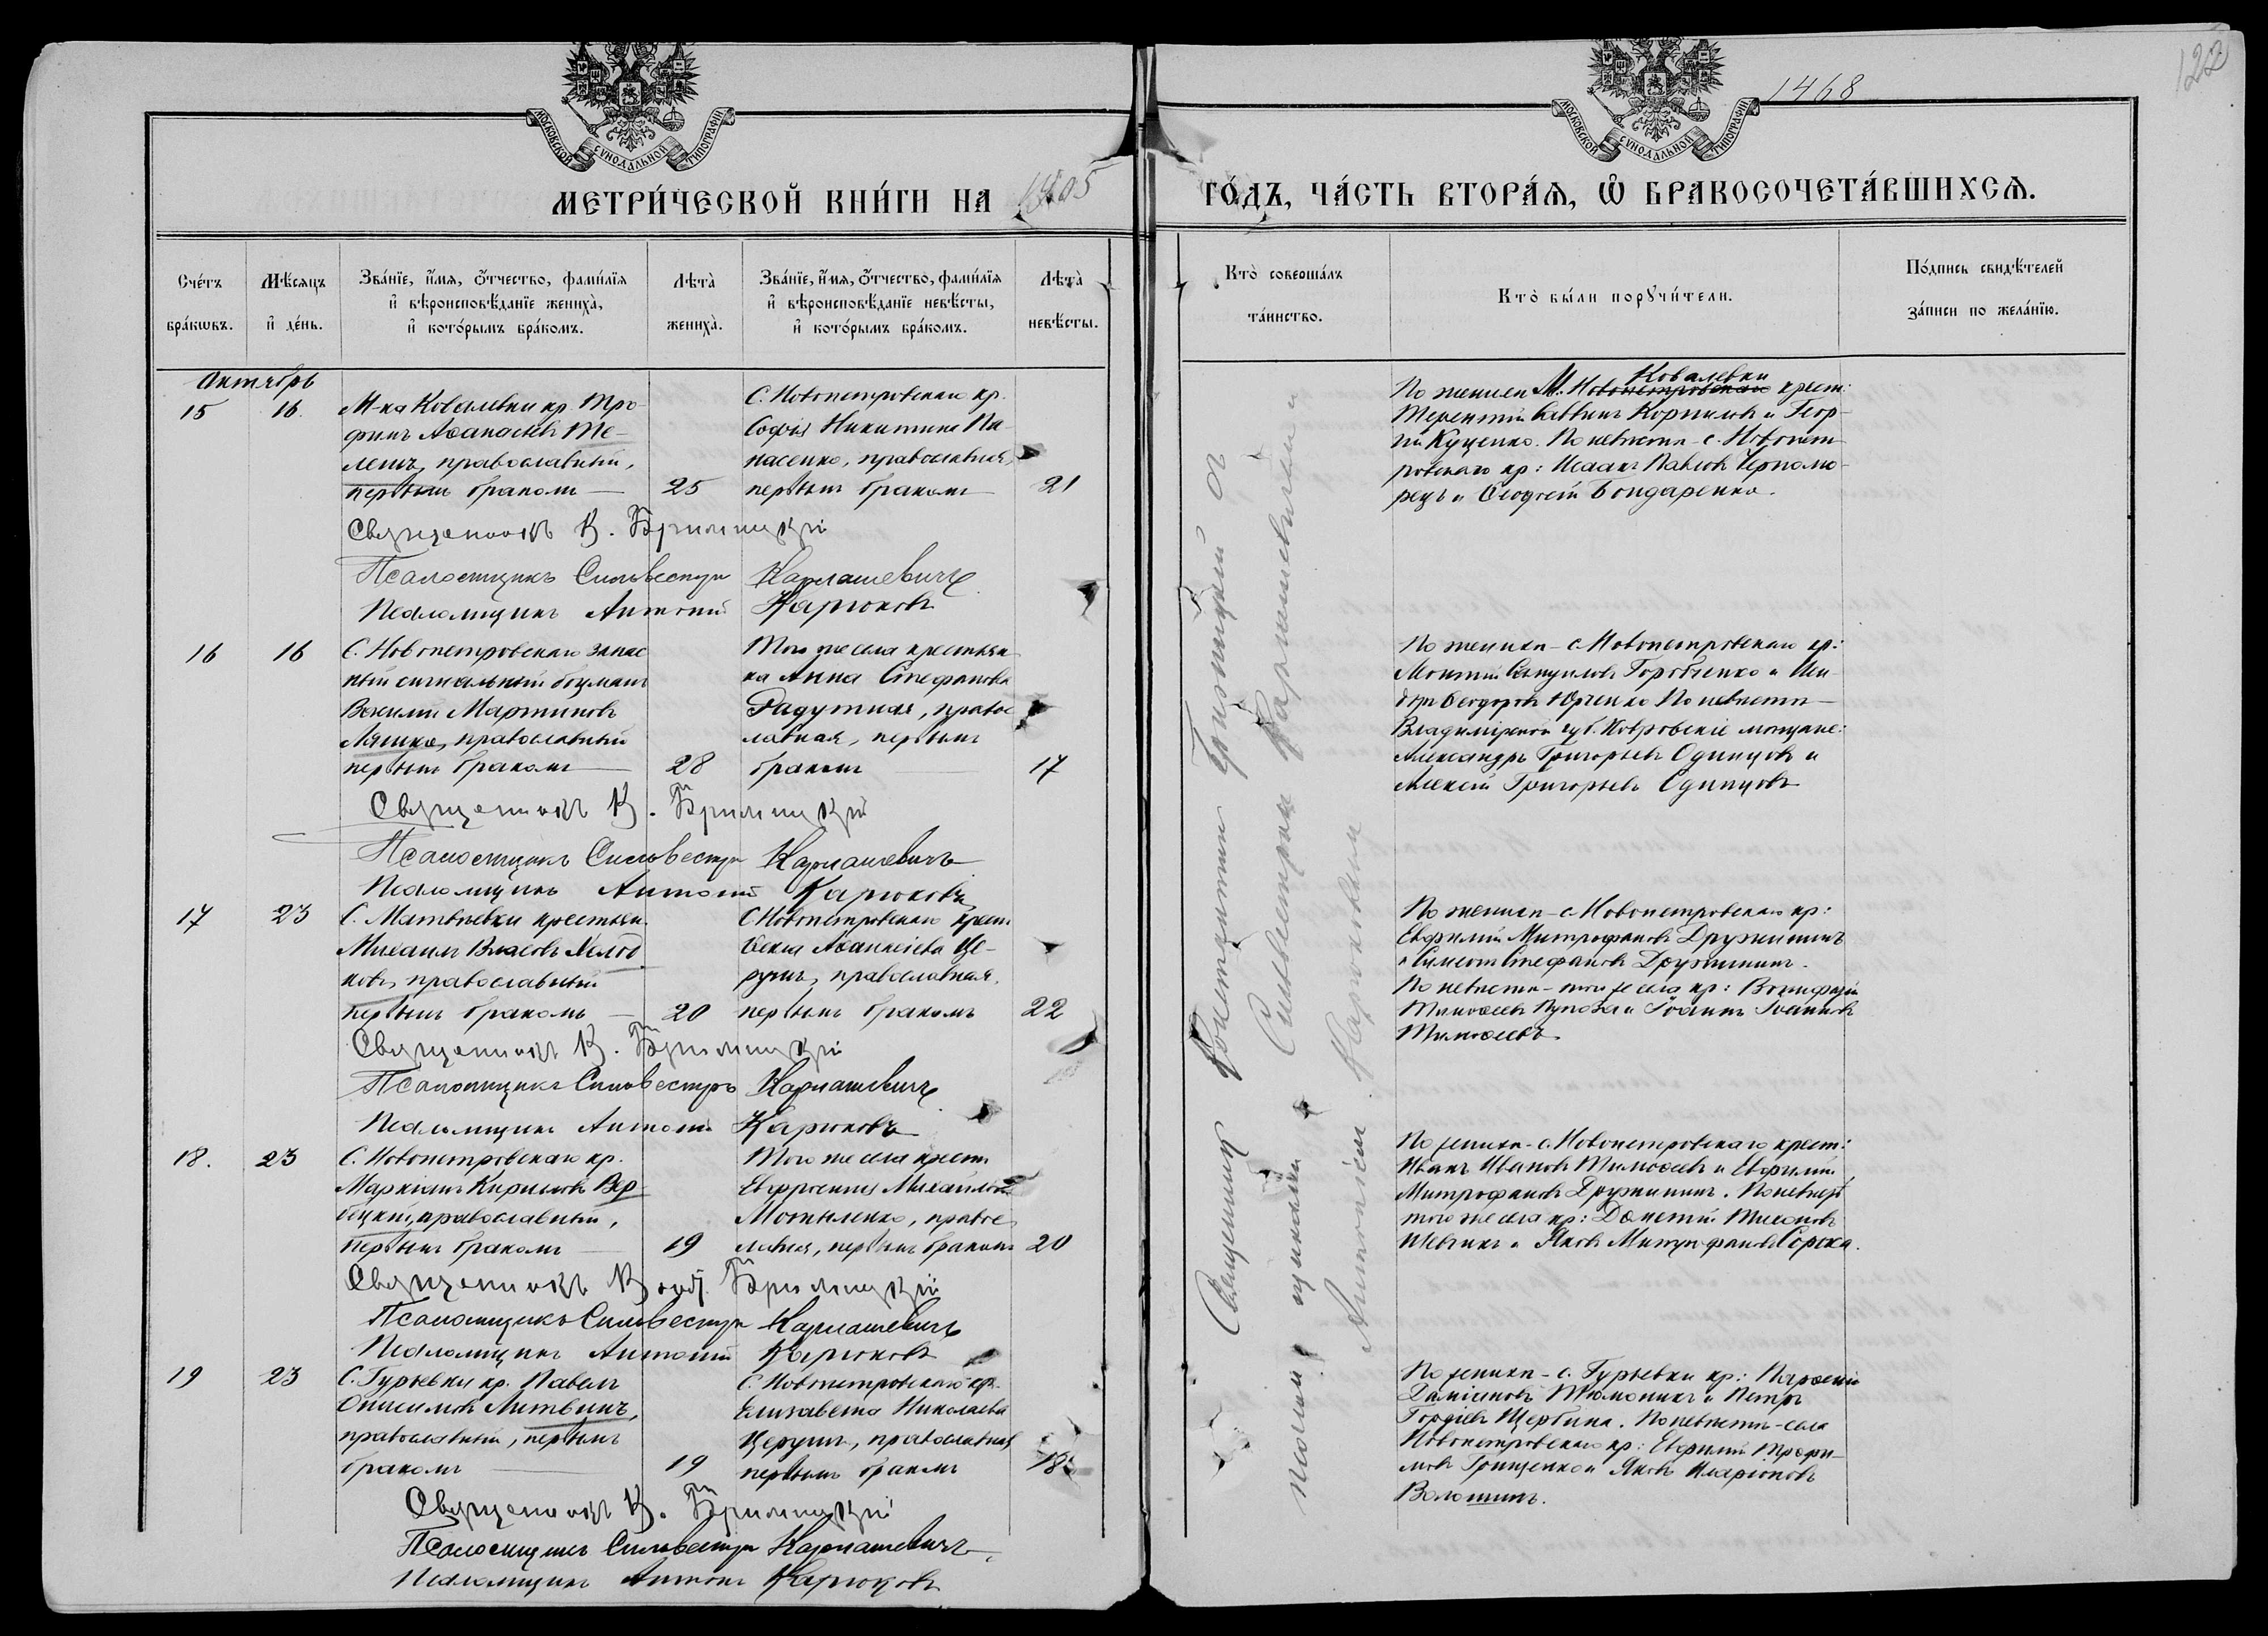 1468
122
МОСКОВСКОЙ СѴНОДАЛЬНОЙ ТИПОГРАФІИ
МОСКОВСКОЙ СѴНОДАЛЬНОЙ ТИПОГРАФІИ
МЕТРИ́ЧЕСКОЙ КНИ́ГИ НА 1905
ГО́ДЪ, ЧА́СТЬ ВТОРА́Ѧ, Ѽ БРАКОСОЧЕТА́ВШИХСѦ.
Сче́тъ бра́кѡвъ.
Мѣ́сяцъ и҆ де́нь.
Зва́нїе, и҆́мѧ, ѻ҆́тчество, фами́лїѧ и҆ вѣроисповѣ́данїе жениха̀, и҆ кото́рымъ бра́комъ.
Лѣта̀ жениха̀.
Зва́нїе, и҆́мѧ, ѻ҆́тчество, фами́лїѧ и҆ вѣроисповѣ́данїе невѣ́сты, и҆ кото́рымъ бра́комъ.
Лѣта̀ невѣ́сты.
Кто̀ соверша́лъ та́инство.
Кто̀ бы́ли порꙋчи́тели.
По́дпись свидѣ́телей за́писи по жела́нїю.
Октябрь
15 16.
М-ка Ковалевки кр. Тро-
фимъ Аѳанасіевъ Те-
лешъ, православный,
первымъ бракомъ — 25
С. Новопетровскаго кр.
Софія Никитина Па-
насенко, православная,
первымъ бракомъ 21
По женихѣ М. Ковалевки крест:
Терентій Саввинъ Корниловъ и Геор-
гій Куценко. По невѣстѣ - с. Новопет-
ровскаго кр: Исаакъ Павловъ Черномо-
рецъ и Ѳеодосій Бондаренко.
Священникъ К. Гримицкій
Псаломщикъ Сильвестръ Кармашевичъ
Псаломщикъ Антоній Карюковъ
16 16
С. Новопетровскаго запас
ный сигнальный боцманъ
Василій Мартиновъ
Ляшко, православный
первымъ бракомъ — 28
Того же села крестьян
ка Анна Стефанова
Радутная, правос
лавная, первымъ
бракомъ — 17
По женихѣ - с. Новопетровскаго кр:
Горобченко и Иси-
доръ Ѳеодоровъ Юрченко По невѣстѣ
Владимірской губ. Ковровскіе мѣщане:
Александръ Григорьевъ Одинцовъ и
Алексѣй Григорьевъ Одинцовъ
Священникъ К. Гримицкій
Псаломщикъ Сильвестръ Кармашевичъ
Псаломщикъ Антоній Карюковъ
17 23
С. Матвѣевки крестьян.
Михаилъ Власовъ
православный
первымъ бракомъ — 20
С. Новопетровскаго крест
Ѳекла Аѳанасіева Це-
руш, православная,
первымъ бракомъ 22
По женихѣ - с. Новопетровскаго кр:
Евфимій Митрофановъ Дружининъ
и Симеонъ Стефановъ Дружининъ.
По невѣстѣ - того же села кр: Вонифатій
Тимоѳеевъ и Іоаннъ Іоанновъ
Тимоѳеевъ.
Священникъ К. Гримицкій
Псаломщикъ Сильвестръ Кармашевичъ
Псаломщикъ Антоній Карюковъ
18. 23
С. Новопетровскаго кр.
Маркіанъ Кириловъ Вер
бицкій, православный,
первымъ бракомъ — 19
Того же села крест
Евфросинія Михайлова
Мотыленко, правос
лавная, первымъ бракомъ 20
По женихѣ - с. Новопетровскаго крест:
Иванъ Ивановъ Тимоѳеевъ и Евфимій
Митрофановъ Дружининъ. По невѣстѣ
того же села кр: Дометій Тихоновъ
Шевчикъ и Яковъ Митрофановъ Сорока.
Священникъ Гримицкій
Псаломщикъ Сильвестръ Кармашевичъ
Псаломщикъ Антоній Карюковъ
19 23
С. Гурьевки кр. Павелъ
Онисимовъ Литвинъ,
православный, первымъ
бракомъ — 19
С. Новопетровскаго кр.
Елизавета Николаева
Церуш, православная
первымъ бракомъ 18
По женихѣ - с. Гурьевки кр:
Даміановъ и Петръ
Гордіевъ Щербина. По невѣстѣ - села
Новопетровскаго кр: Евфимій Трофи-
мовъ Грищенко и Яковъ Иларіоновъ
Волошинъ.
Священникъ К. Гримицкій
Псаломщикъ Сильвестръ Кармашевичъ
Псаломщикъ Антоній Карюковъ
Священникъ Константинъ Гримицкій съ
псаломщиками Сильвестромъ Кармашевичемъ и
Антоніемъ Карюковымъ